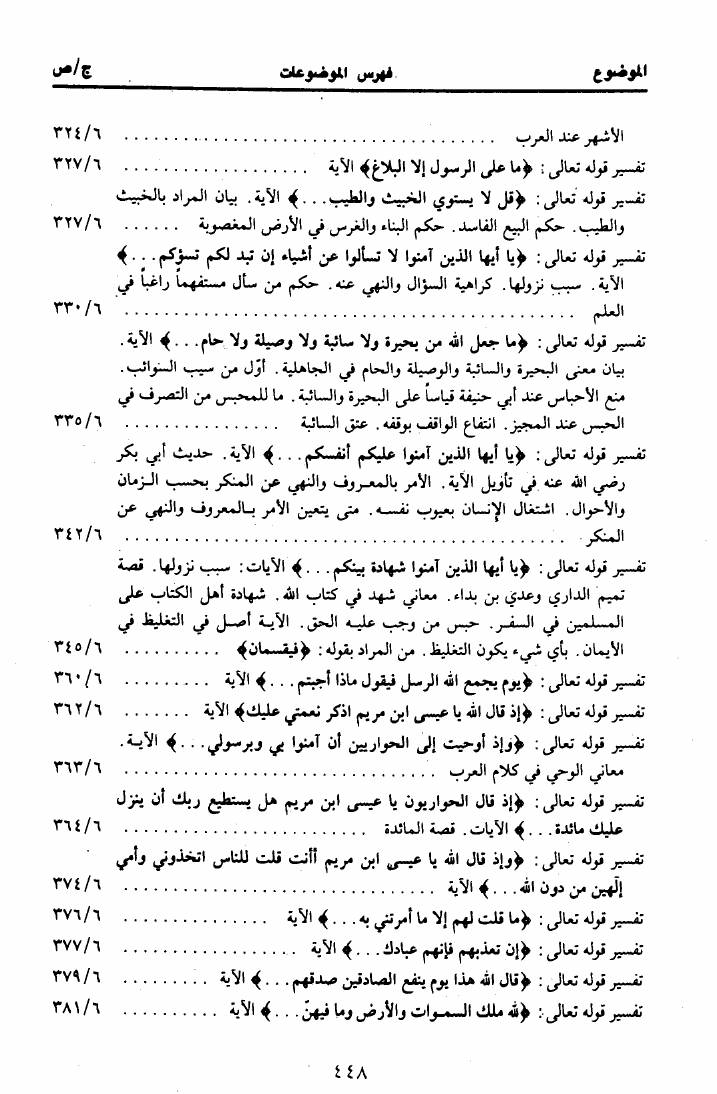 الموضوع فهرس الموضوعات ج/ص
الأشهر عند العرب ................................ ٣٢٤/٦
تفسير قوله تعالى: ﴿ما على الرسول إلا البلاغ﴾ الآية .................. ٣٢٧/٦
تفسير قوله تعالى: ﴿قل لا يستوي الخبيث والطيب...﴾ الآية. بيان المراد بالخبيث
والطيب. حكم البيع الفاسد. حكم البناء والغرس في الأرض المغصوبة ...... ٣٢٧/٦
تفسير قوله تعالى: ﴿يا أيها الذين آمنوا لا تسألوا عن أشياء إن تبد لكم تسؤكم...﴾
الآية. سبب نزولها. كراهية السؤال والنهي عنه. حكم من سأل مستفهماً راغباً في
العلم ............................................ ٣٣٠/٦
تفسير قوله تعالى: ﴿ما جعل الله من بحيرة ولا سائبة ولا وصيلة ولا حام...﴾ الآية.
بيان معنى البحيرة والسائبة والوصيلة والحام في الجاهلية. أوّل من سيب السوائب.
منع الأحباس عند أبي حنيفة قياساً على البحيرة والسائبة. ما للمحبس من التصرف في
الحبس عند المجيز. انتفاع الواقف بوقفه. عتق السائبة ................ ٣٣٥/٦
تفسير قوله تعالى: ﴿يا أيها الذين آمنوا عليكم أنفسكم...﴾ الآية. حديث أبي بكر
رضي الله عنه في تأويل الآية. الأمر بالمعروف والنهي عن المنكر بحسب الزمان
والأحوال. اشتغال الإنسان بعيوب نفسه. متى يتعين الأمر بالمعروف والنهي عن
المنكر ............................................ ٣٤٢/٦
تفسير قوله تعالى: ﴿يا أيها الذين آمنوا شهادة بينكم...﴾ الآيات: سبب نزولها. قصة
تميم الداري وعدي بن بداء. معاني شهد في كتاب الله. شهادة أهل الكتاب على
المسلمين في السفر. حبس من وجب عليه الحق. الآية أصل في التغليظ في
الأيمان. بأي شيء يكون التغليظ. من المراد بقوله: ﴿فيقسمان﴾ .......... ٣٤٥/٦
تفسير قوله تعالى: ﴿يوم يجمع الله الرسل فيقول ماذا أجبتم...﴾ الآية ......... ٣٦٠/٦
تفسير قوله تعالى: ﴿إذ قال الله يا عيسى ابن مريم اذكر نعمتي عليك﴾ الآية ....... ٣٦٢/٦
تفسير قوله تعالى: ﴿وإذ أوحيت إلى الحواريين أن آمنوا بي وبرسولي...﴾ الآية.
معاني الوحي في كلام العرب ................................ ٣٦٣/٦
تفسير قوله تعالى: ﴿إذ قال الحواريون يا عيسى ابن مريم هل يستطيع ربك أن ينزل
عليك مائدة...﴾ الآيات. قصة المائدة ........................ ٣٦٤/٦
تفسير قوله تعالى: ﴿وإذ قال الله يا عيسى ابن مريم أأنت قلت للناس اتخذوني وأمي
إلٰهين من دون الله...﴾ الآية ................................ ٣٧٤/٦
تفسير قوله تعالى: ﴿ما قلت لهم إلا ما أمرتني به...﴾ الآية ............... ٣٧٦/٦
تفسير قوله تعالى: ﴿إن تعذبهم فإنهم عبادك...﴾ الآية .................. ٣٧٧/٦
تفسير قوله تعالى: ﴿قال الله هذا يوم ينفع الصادقين صدقهم...﴾ الآية ......... ٣٧٩/٦
تفسير قوله تعالى: ﴿لله ملك السموات والأرض وما فيهنّ...﴾ الآية .......... ٣٨١/٦
٤٤٨